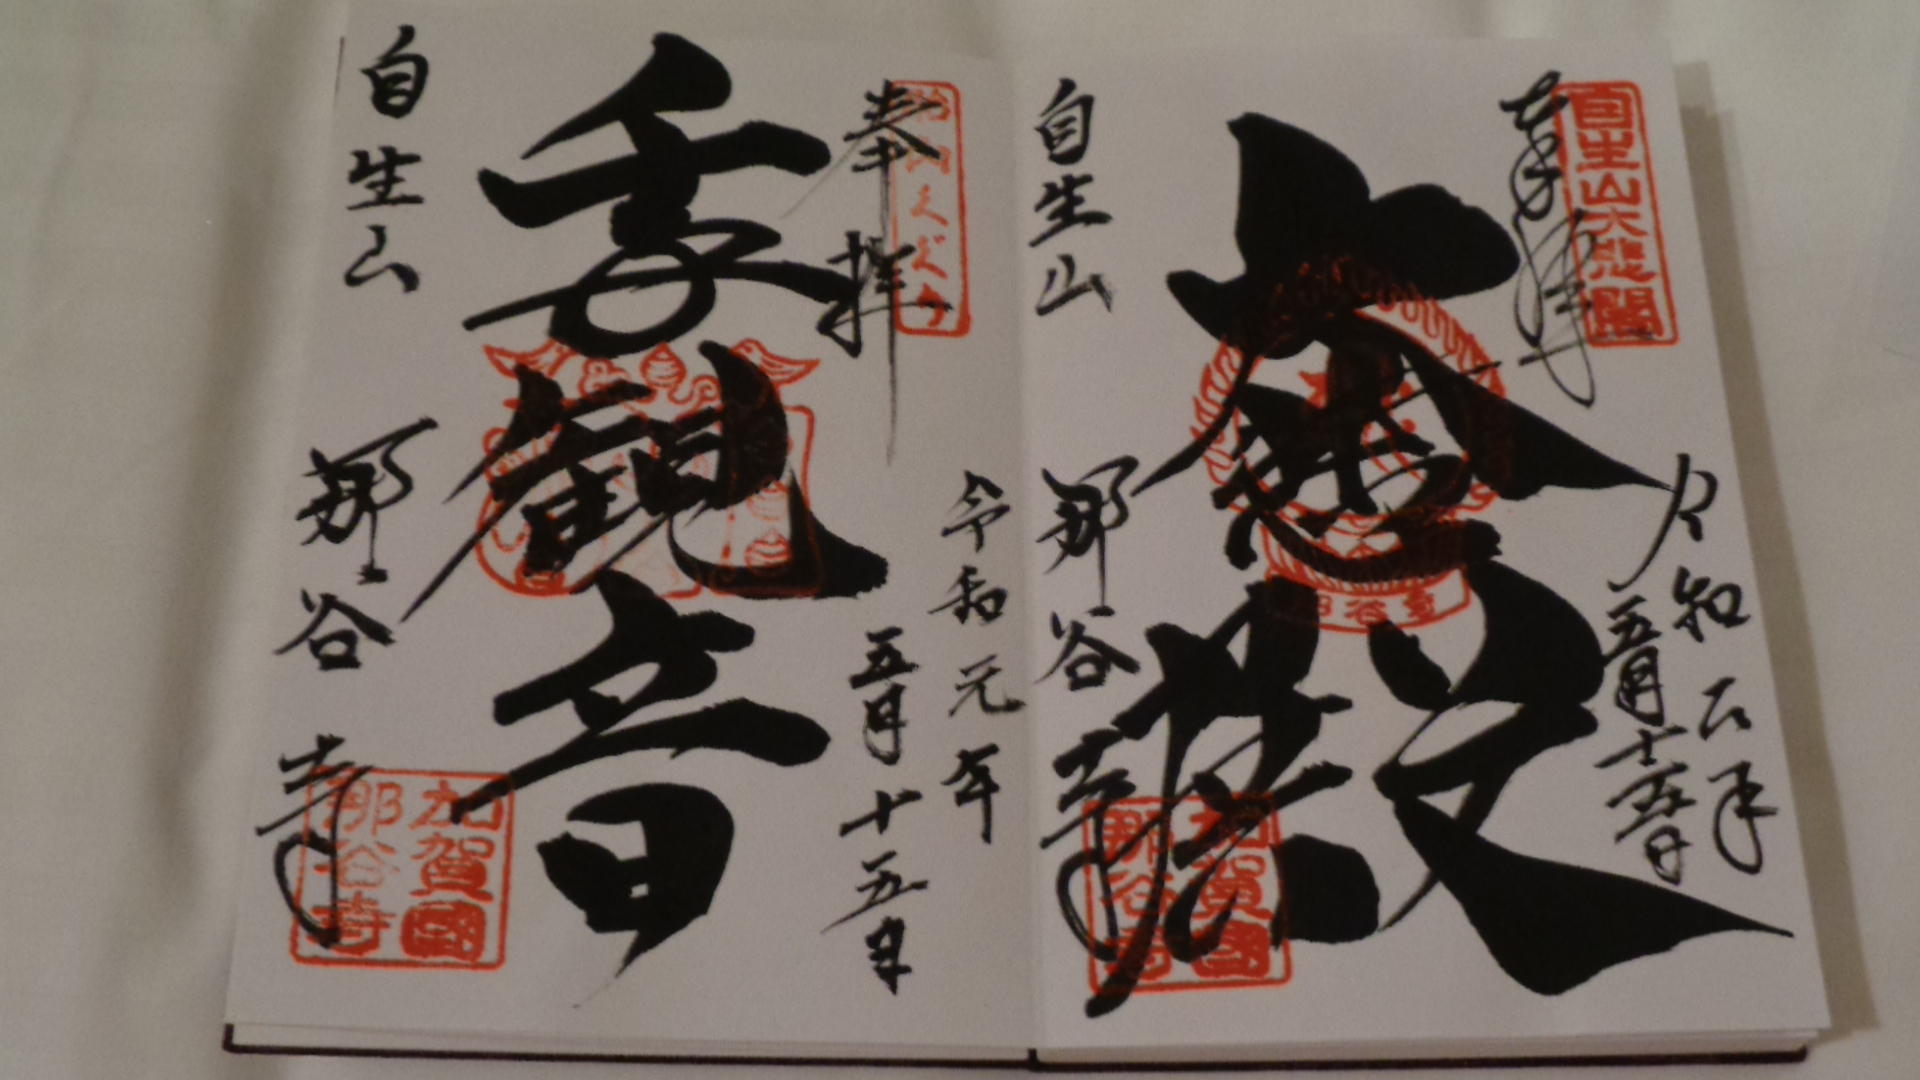 自生山大悲閣
奉拝
令和元年
五月十五日
大悲殿
那谷寺
自生山
那谷寺
加賀國
那谷寺
奉拝
令和元年
五月十五日
千手観音
自生山
那谷寺
加賀國
那谷寺